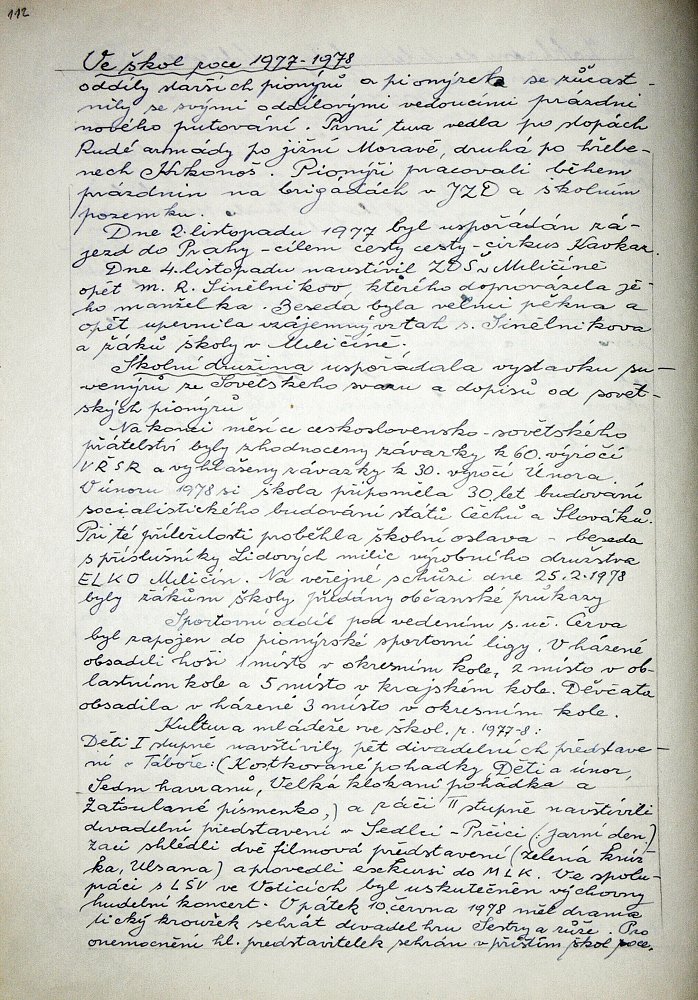 112
Ve škol roce 1977-1978
oddíly starších pionýrů a pionýrek se zúčast-
nily se svými oddílovými vedoucími prázdni
nového putování. První tura vedla po stopách
Rudé armády po jižní Moravě, druhá po hřebe-
nech Krkonoš. Pionýři pracovali během
prázdnin na brigádách v JZD a školním
pozemku.
Dne 2. listopadu 1977 byl uspořádán zá-
jezd do Prahy - cílem cesty cesty - cirkus Kavkaz.
Dne 4. listopadu navštívil ZDŠ v Miličíně
opět m. R. Sinělnikov kterého doprovázela je-
ho manželka. Beseda byla velmi pěkná a
opět upevnila vzájemný vztah s. Sinělnikova
a žáků školy v Miličíně.
Školní družina uspořádala výstavku su-
venýrů ze Sovětského svazu a dopisů od sovět-
ských pionýrů
Na konci měsíce československo-sovětského
přátelství byly zhodnoceny závazky k 60. výročí
VŘSR a vyhlášeny závazky k 30. výročí Února.
V únoru 1978 si škola připoměla 30 let budování
socialistického budování států Čechů a Slováků.
Při té příležitosti proběhla školní oslava - beseda
s příslušníky Lidových milic výrobního družstva
ELKO Miličín. Na veřejné schůzi dne 25.2.1978
byly žákům školy předány občanské průkazy
Sportovní oddíl pod vedením s. uč. Červa
byl zapojen do pionýrské sportovní ligy. V házené
obsadili hoši 1 místo v okresním kole, 2 místo v ob-
lastním kole a 5 místo v krajském kole. Děvčata
obsadila v házené 3 místo v okresním kole.
Kultura mládeže ve škol. r. 1977-8:
Děti I stupně navštívily pět divadelních představe-
ní v Táboře: (Kostkované pohádky, Děti a únor,
Sedm havranů, Velká klokaní pohádka a
Zatoulané písmenko,) a žáci II stupně navštívili
divadelní představení v Sedlci - Prčici (jarní den.)
žaci shlédli dvě filmová představení (Zelená kníž
ka, Ulzana) a provedli exkursi do MLK. Ve spolu-
práci s LŠU ve Voticích byl uskutečněn výchovný
hudelní koncert. V pátek 10. června 1978 měl drama
tický kroužek sehrát divadel hru Sestry a růže. Pro
onemocnění hl. představitelek sehrán v příštím škol roce.